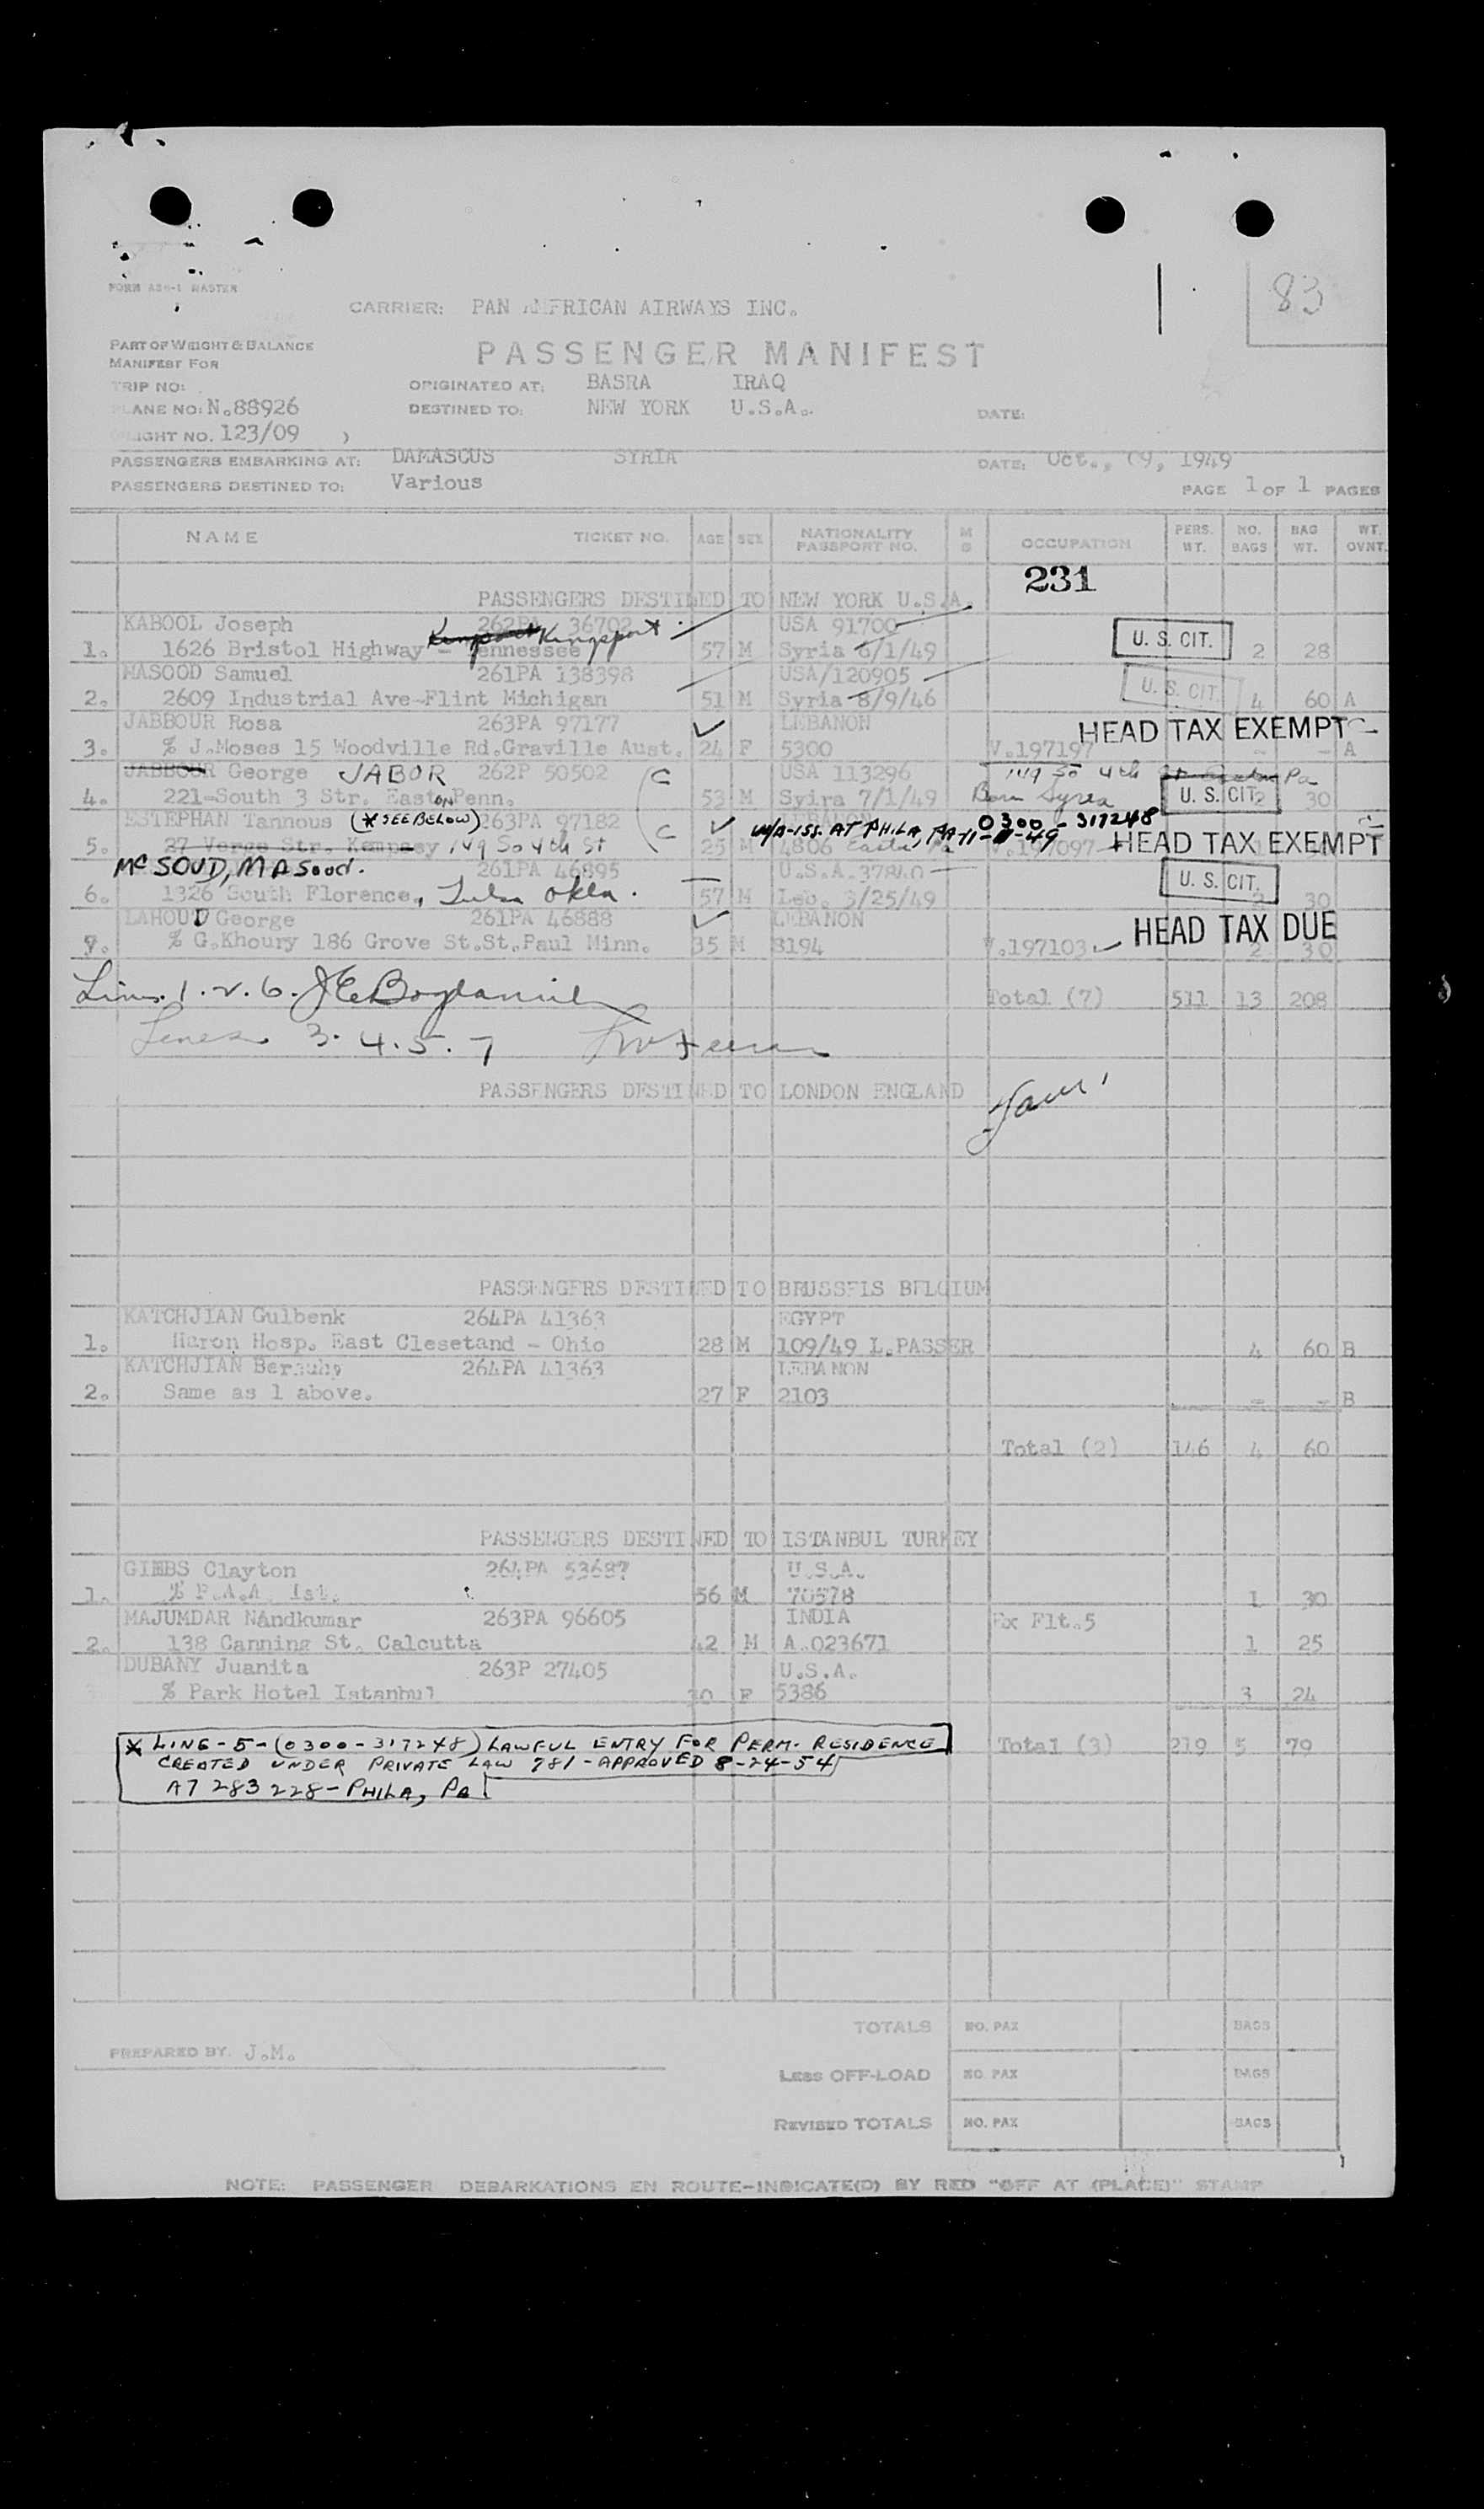 83
CARRIER: PAN AMERICAN AIRWAYS INC.
PART OF WEIGHT & BALANCE
MANIFEST FOR
PASSENGER MANIFEST
TRIP NO:
ORIGINATED AT: BASRA IRAQ
PLANE NO: N.88926
DESTINED TO: NEW YORK U.S.A.
DATE:
FLIGHT NO. 123/09 )
PASSENGERS EMBARKING AT: DAMASCUS SYRIA
DATE: Oct., 09, 1949
PASSENGERS DESTINED TO: Various
PAGE 1 OF 1 PAGES
NAME TICKET NO. AGE SEX NATIONALITY PASSPORT NO. M S OCCUPATION PERS. WT. NO. BAGS BAG WT. WT. OVNT.
231
PASSENGERS DESTINED TO NEW YORK U.S.A.
KABOOL Joseph 262PA 36702 USA 91700
1. 1626 Bristol Highway - Kingsport Tennessee 57 M Syria 6/1/49 U. S. CIT. 2 28
MASOOD Samuel 261PA 138398 USA/120905
2. 2609 Industrial Ave-Flint Michigan 51 M Syria 8/9/46 U. S. CIT. 4 60 A
JABBOUR Rosa 263PA 97177 LEBANON
3. % J.Moses 15 Woodville Rd.Graville Aust. 24 F 5300 V.197197 HEAD TAX EXEMPT - - A
JABBOUR George JABOR 262P 50502 C USA 113296 149 So 4th Pa
4. 221-South 3 Str. Easton Penn. 53 M Syira 7/1/49 Born Syria U. S. CIT. 2 30
ESTEPHAN Tannous (* SEE BELOW) 263PA 97182 C LEBANON W/A-ISS. AT PHILA, PA 0300-317248
5. 27 Verge Str. Kempsey 149 So 4th St 25 M 4806 V.197097 HEAD TAX EXEMPT
McSOUD, MASoud. 261PA 46895 U.S.A.37840
6. 1326 South Florence, Tulsa Okla. 57 M Leb. 3/25/49 U. S. CIT. 2 30
LAHOUD George 261PA 46888 LEBANON
7. % G.Khoury 186 Grove St.St.Paul Minn. 35 M 3194 V.197103 HEAD TAX DUE 2 30
Lines. 1. 2. 6.
Total (7) 511 13 208
Lines 3. 4. 5. 7
PASSENGERS DESTINED TO LONDON ENGLAND
PASSENGERS DESTINED TO BRUSSELS BELGIUM
KATCHJIAN Gulbenk 264PA 41363 EGYPT
1. Huron Hosp. East Clesetand - Ohio 28 M 109/49 L.PASSER 4 60 B
KATCHJIAN 264PA 41363 LEBANON
2. Same as 1 above. 27 F 2103 - - B
Total (2) 146 4 60
PASSENGERS DESTINED TO ISTANBUL TURKEY
GIBBS Clayton 264PA 53687 U.S.A.
1. % P.A.A. Ist. 56 M 70578 1 30
MAJUMDAR Nandkumar 263PA 96605 INDIA Ex Flt.5
2. 138 Canning St. Calcutta 42 M A.023671 1 25
DUBANY Juanita 263P 27405 U.S.A.
3 % Park Hotel Istanbul 30 F 5386 3 24
Total (3) 219 5 79
* LINE-5-(0300-317248) LAWFUL ENTRY FOR PERM. RESIDENCE
CREATED UNDER PRIVATE LAW 781-APPROVED 8-24-54
A7 283 228-PHILA, PA
TOTALS NO. PAX BAGS
PREPARED BY. J.M.
LESS OFF-LOAD NO. PAX BAGS
REVISED TOTALS NO. PAX BAGS
NOTE: PASSENGER DEBARKATIONS EN ROUTE-INDICATE(D) BY RED "OFF AT (PLACE)" STAMP